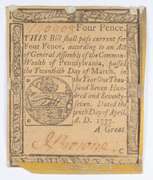 Four Pence.
THIS Bill shall pass current for
Four Pence, according to an Act
of General Assembly of the Common-
Wealth of Pennsylvania, passed
the Twentieth Day of March, in
the Year One Thou-
sand Seven Hun-
dred and Seventy-
seven. Dated the
tenth Day of April,
A. D. 1777.
A Groat